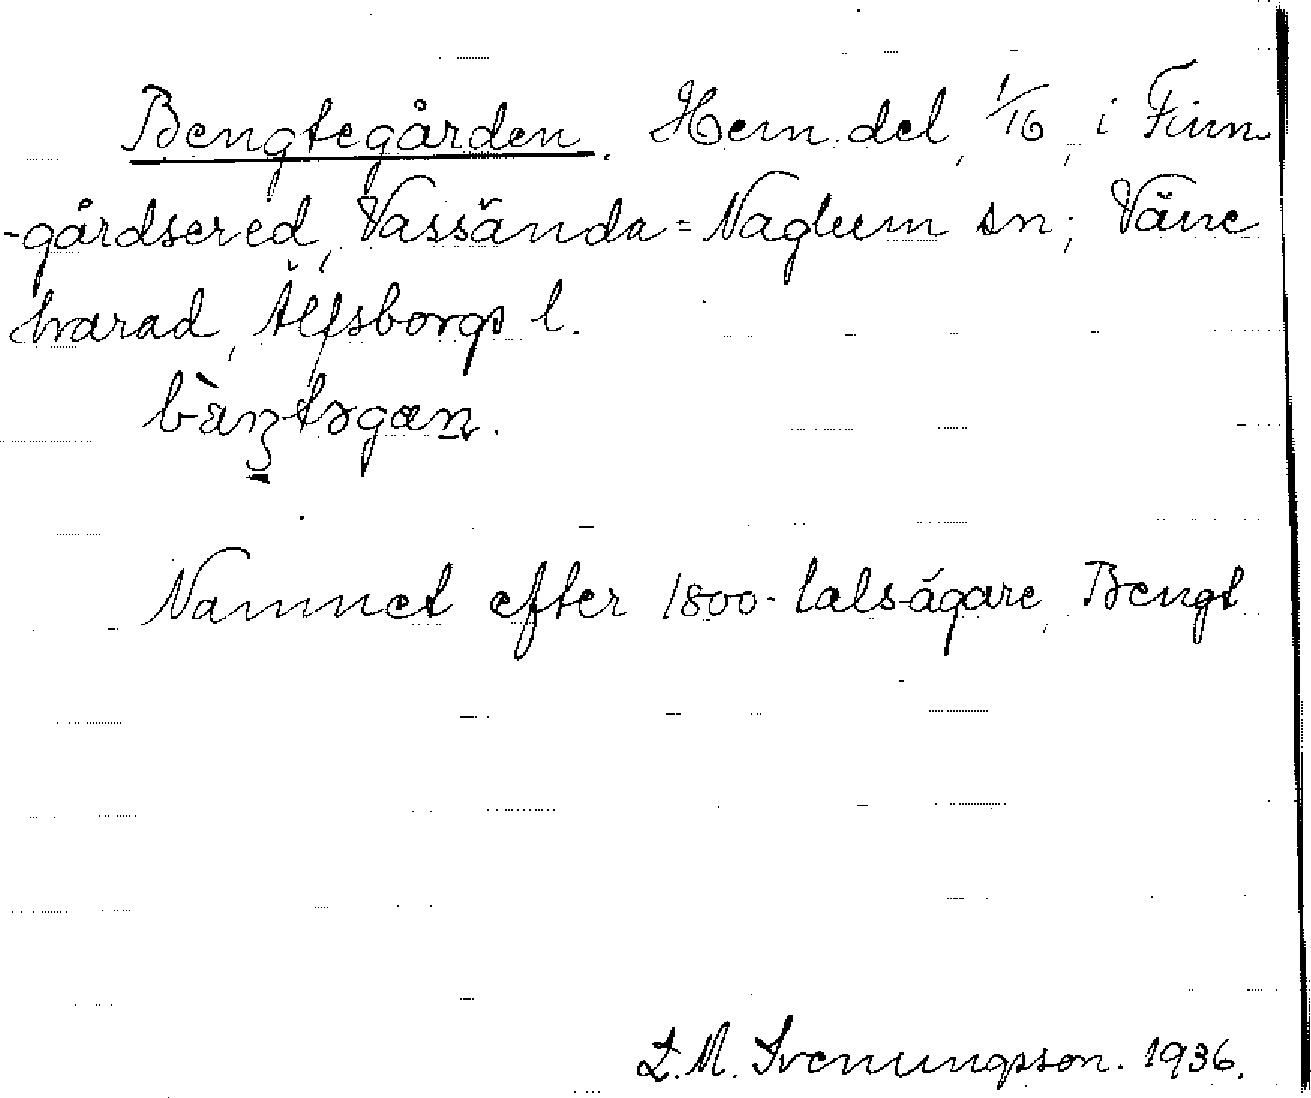 Bengtegården. Hem. del, 1/16, i Finn
-gårdsered, Vassända=Naglum sn; Väne
härad, Älfsborgs l.
Namnet efter 1800-talsägare, Bengt
L. M. Svenungsson. 1936.